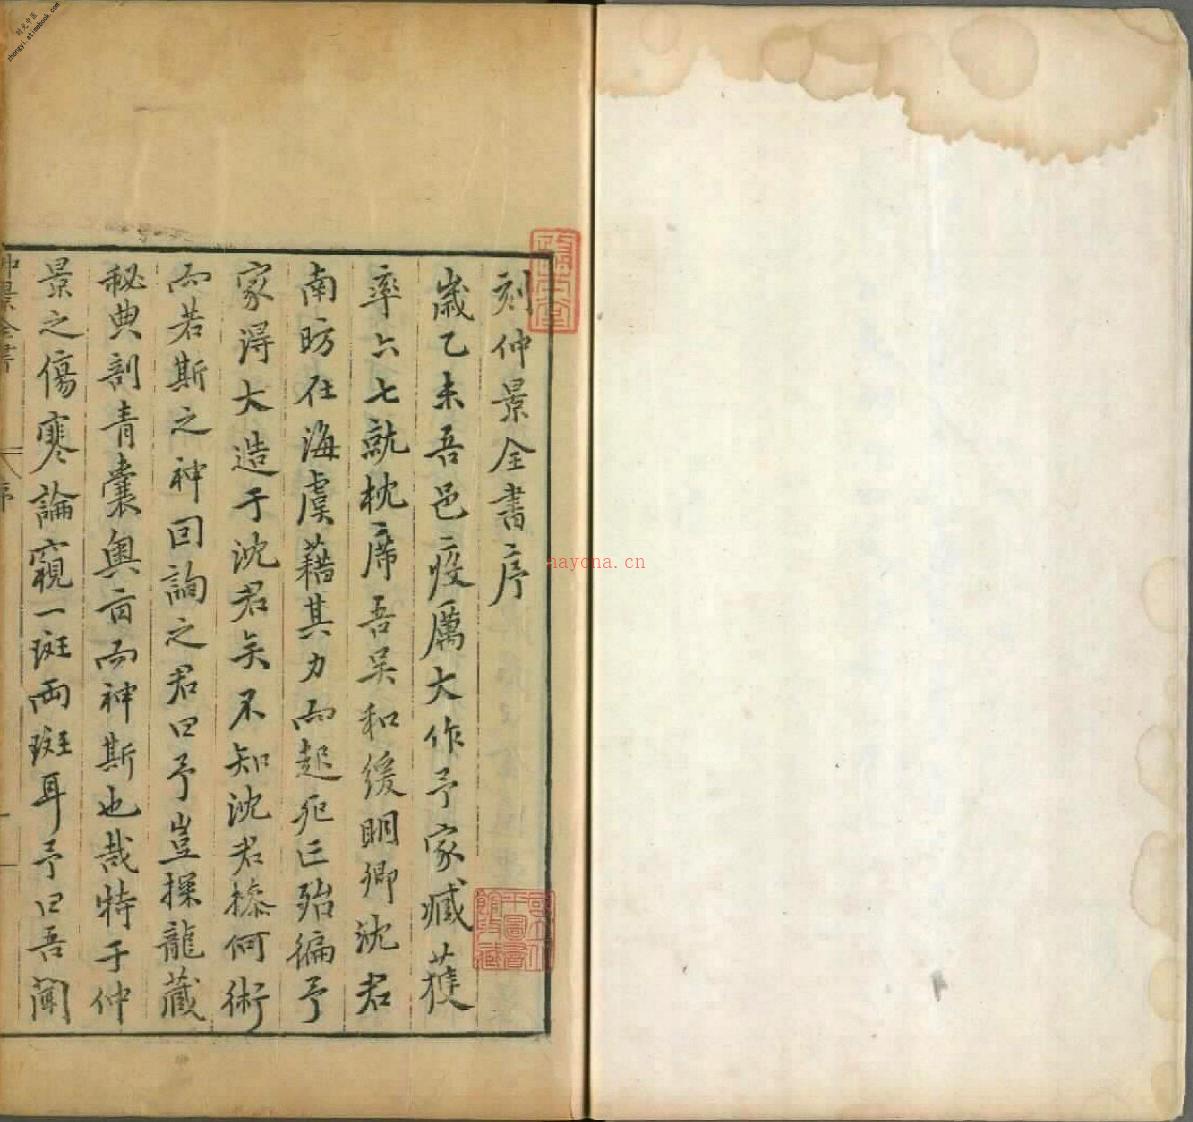 刻仲景全書序
歲乙未吾邑疫厲大作予家臧獲
率六七就枕席吾吴和緩明卿沈君
南昉在海虞藉其力而起死亡殆徧予
家得大造于沈君矣不知沈君操何術
而若斯之神因詢之君曰予豈探龍藏
秘典剖青囊奥旨而神斯也哉特于仲
景之傷寒論窺一斑兩斑耳予曰吾聞
仲景全書
序
時光中医
zhongyi.atimebook.com
nayona.cn